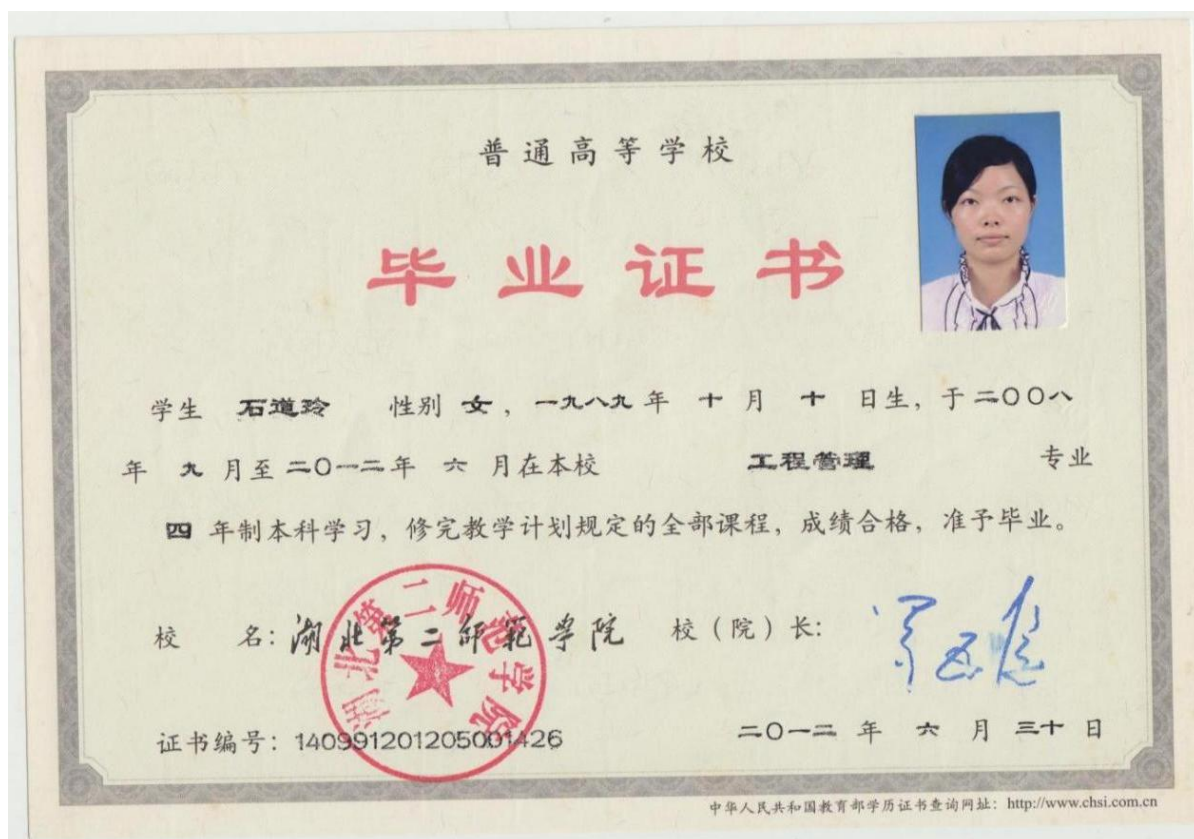 普通高等学校
毕业证书
学生 石道玲 性别 女，一九八九 年 十 月 十 日生，于 二〇〇八
年 九 月至 二〇一二 年 六 月在本校 工程管理 专业
四 年制本科学习，修完教学计划规定的全部课程，成绩合格，准予毕业。
校 名：湖北第二师范学院 校（院）长：
湖北第二师范学院
证书编号：140991201205001426 二〇一二 年 六 月 三十 日
中华人民共和国教育部学历证书查询网址：http://www.chsi.com.cn